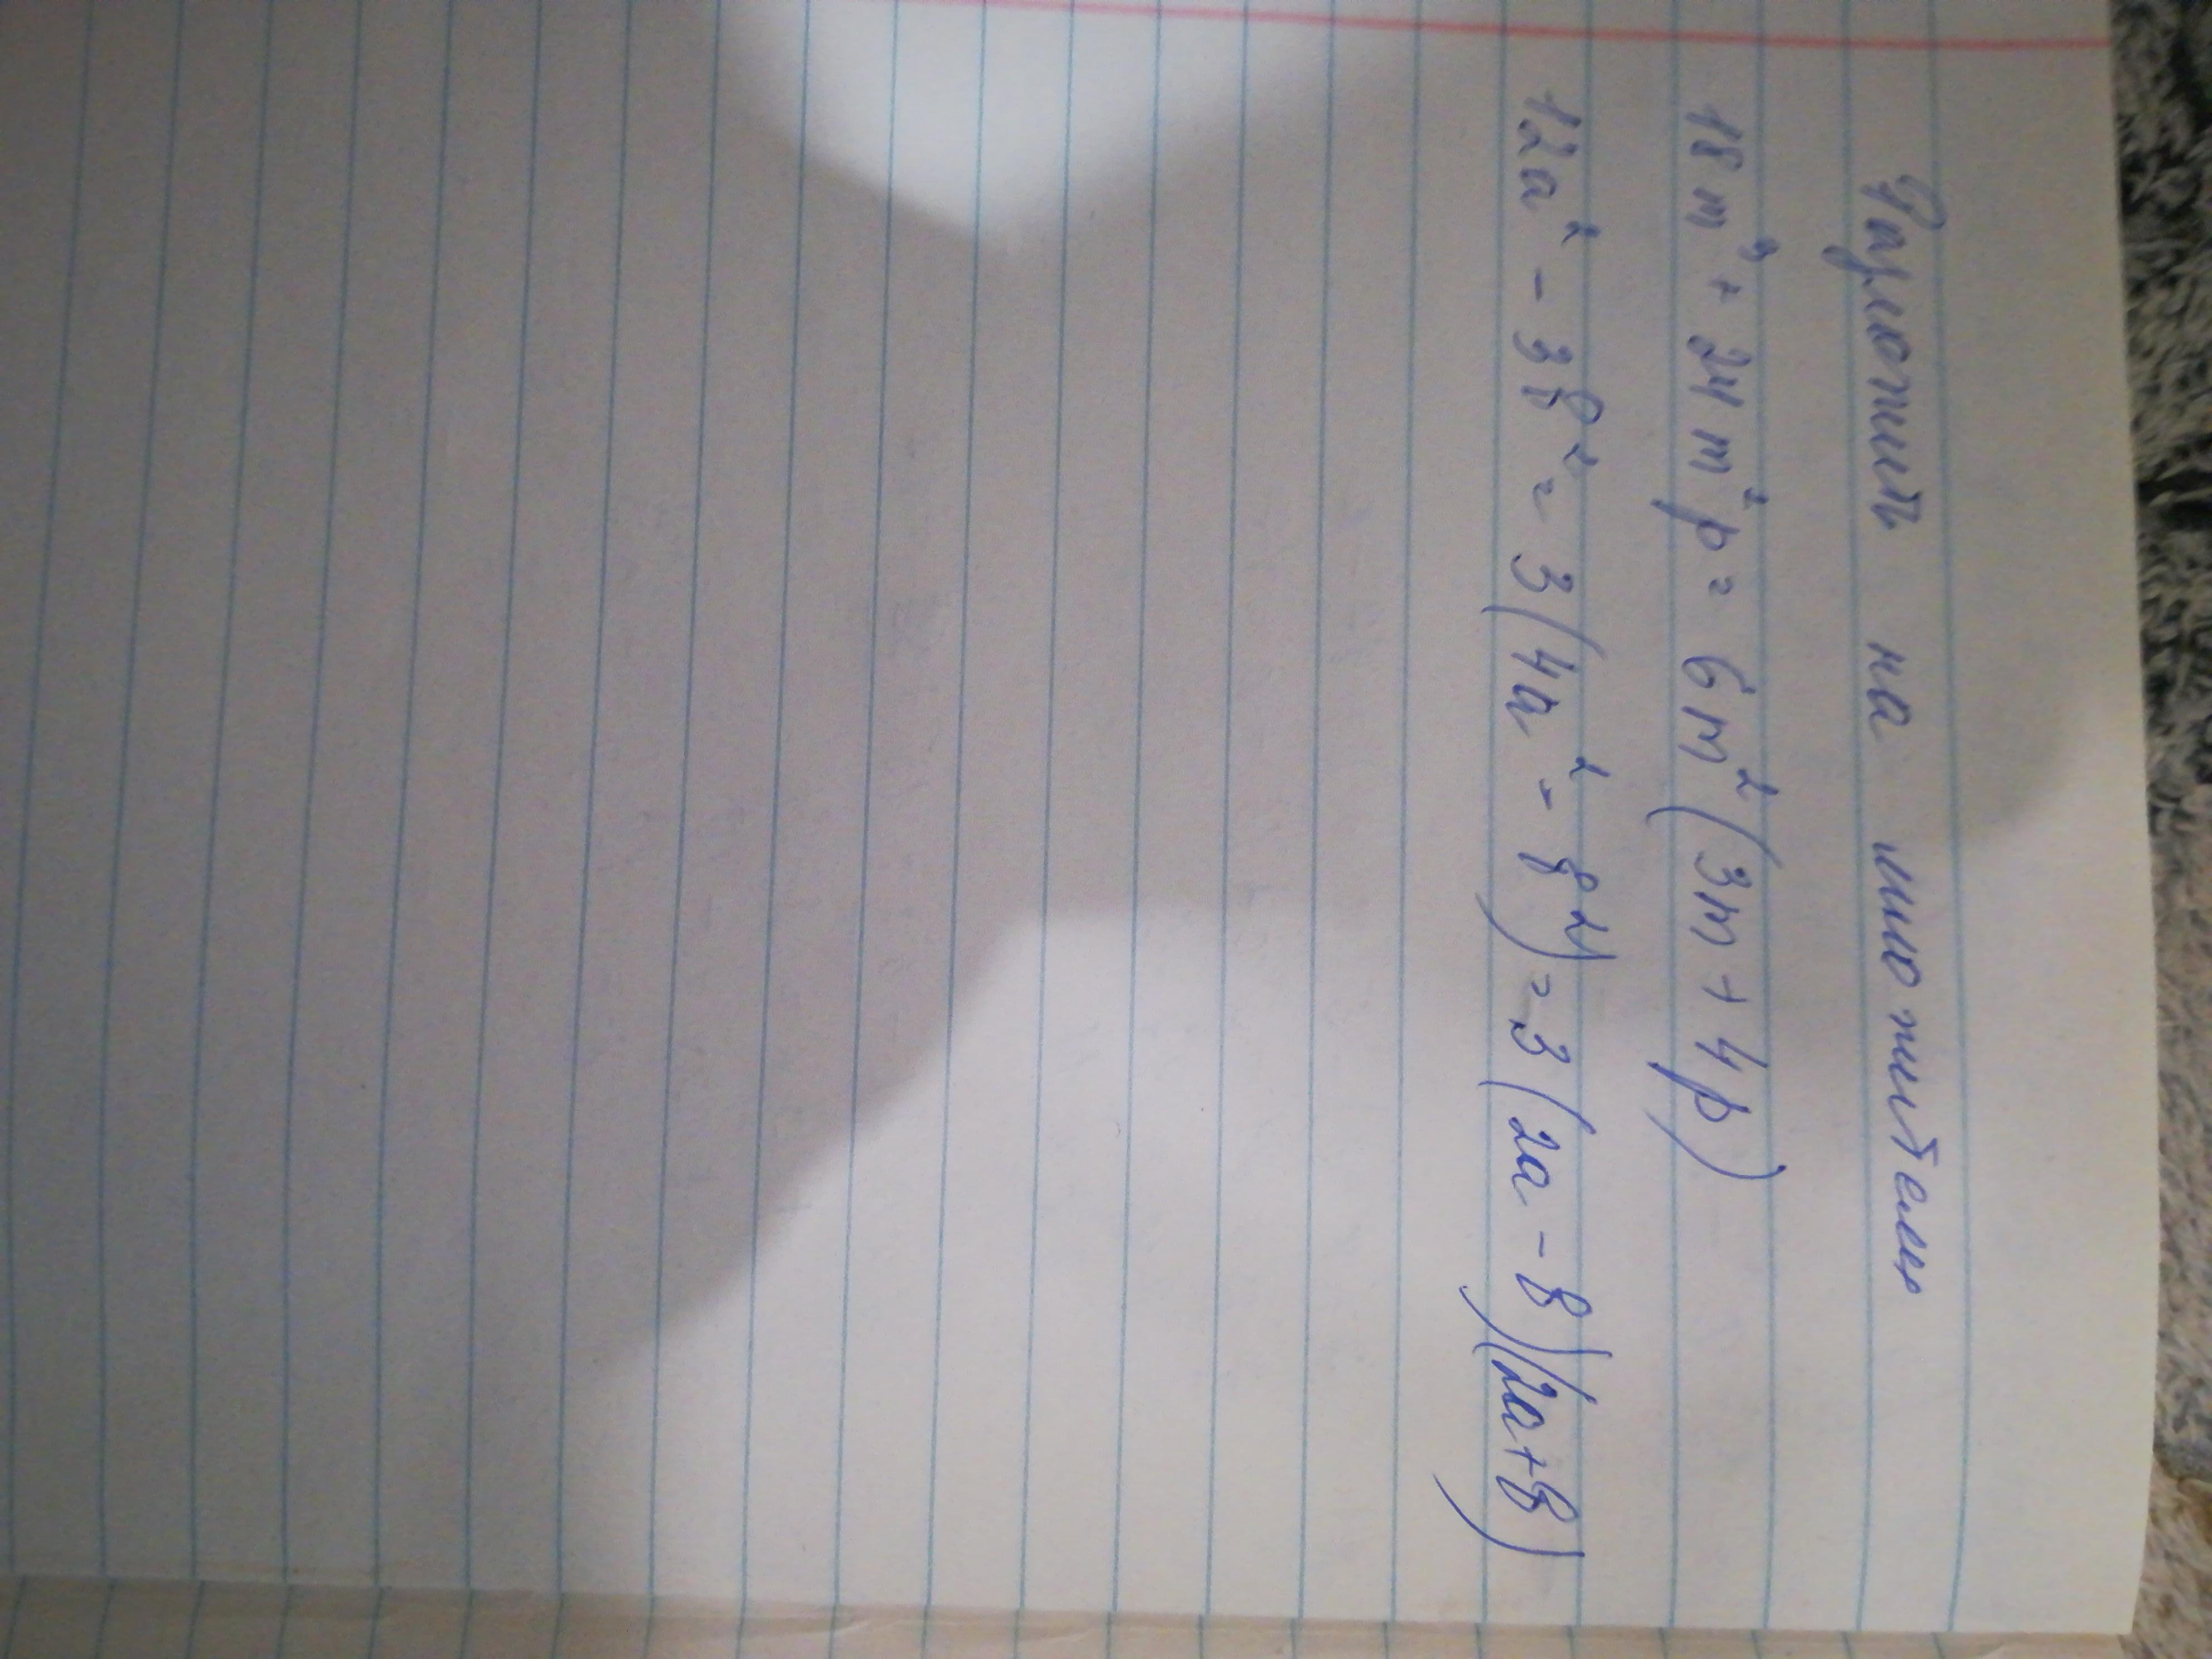 Разложить на множители
18m³ + 24m²p = 6m²(3m + 4p)
12a² - 3b² = 3(4a² - b²) = 3(2a - b)(2a+b)